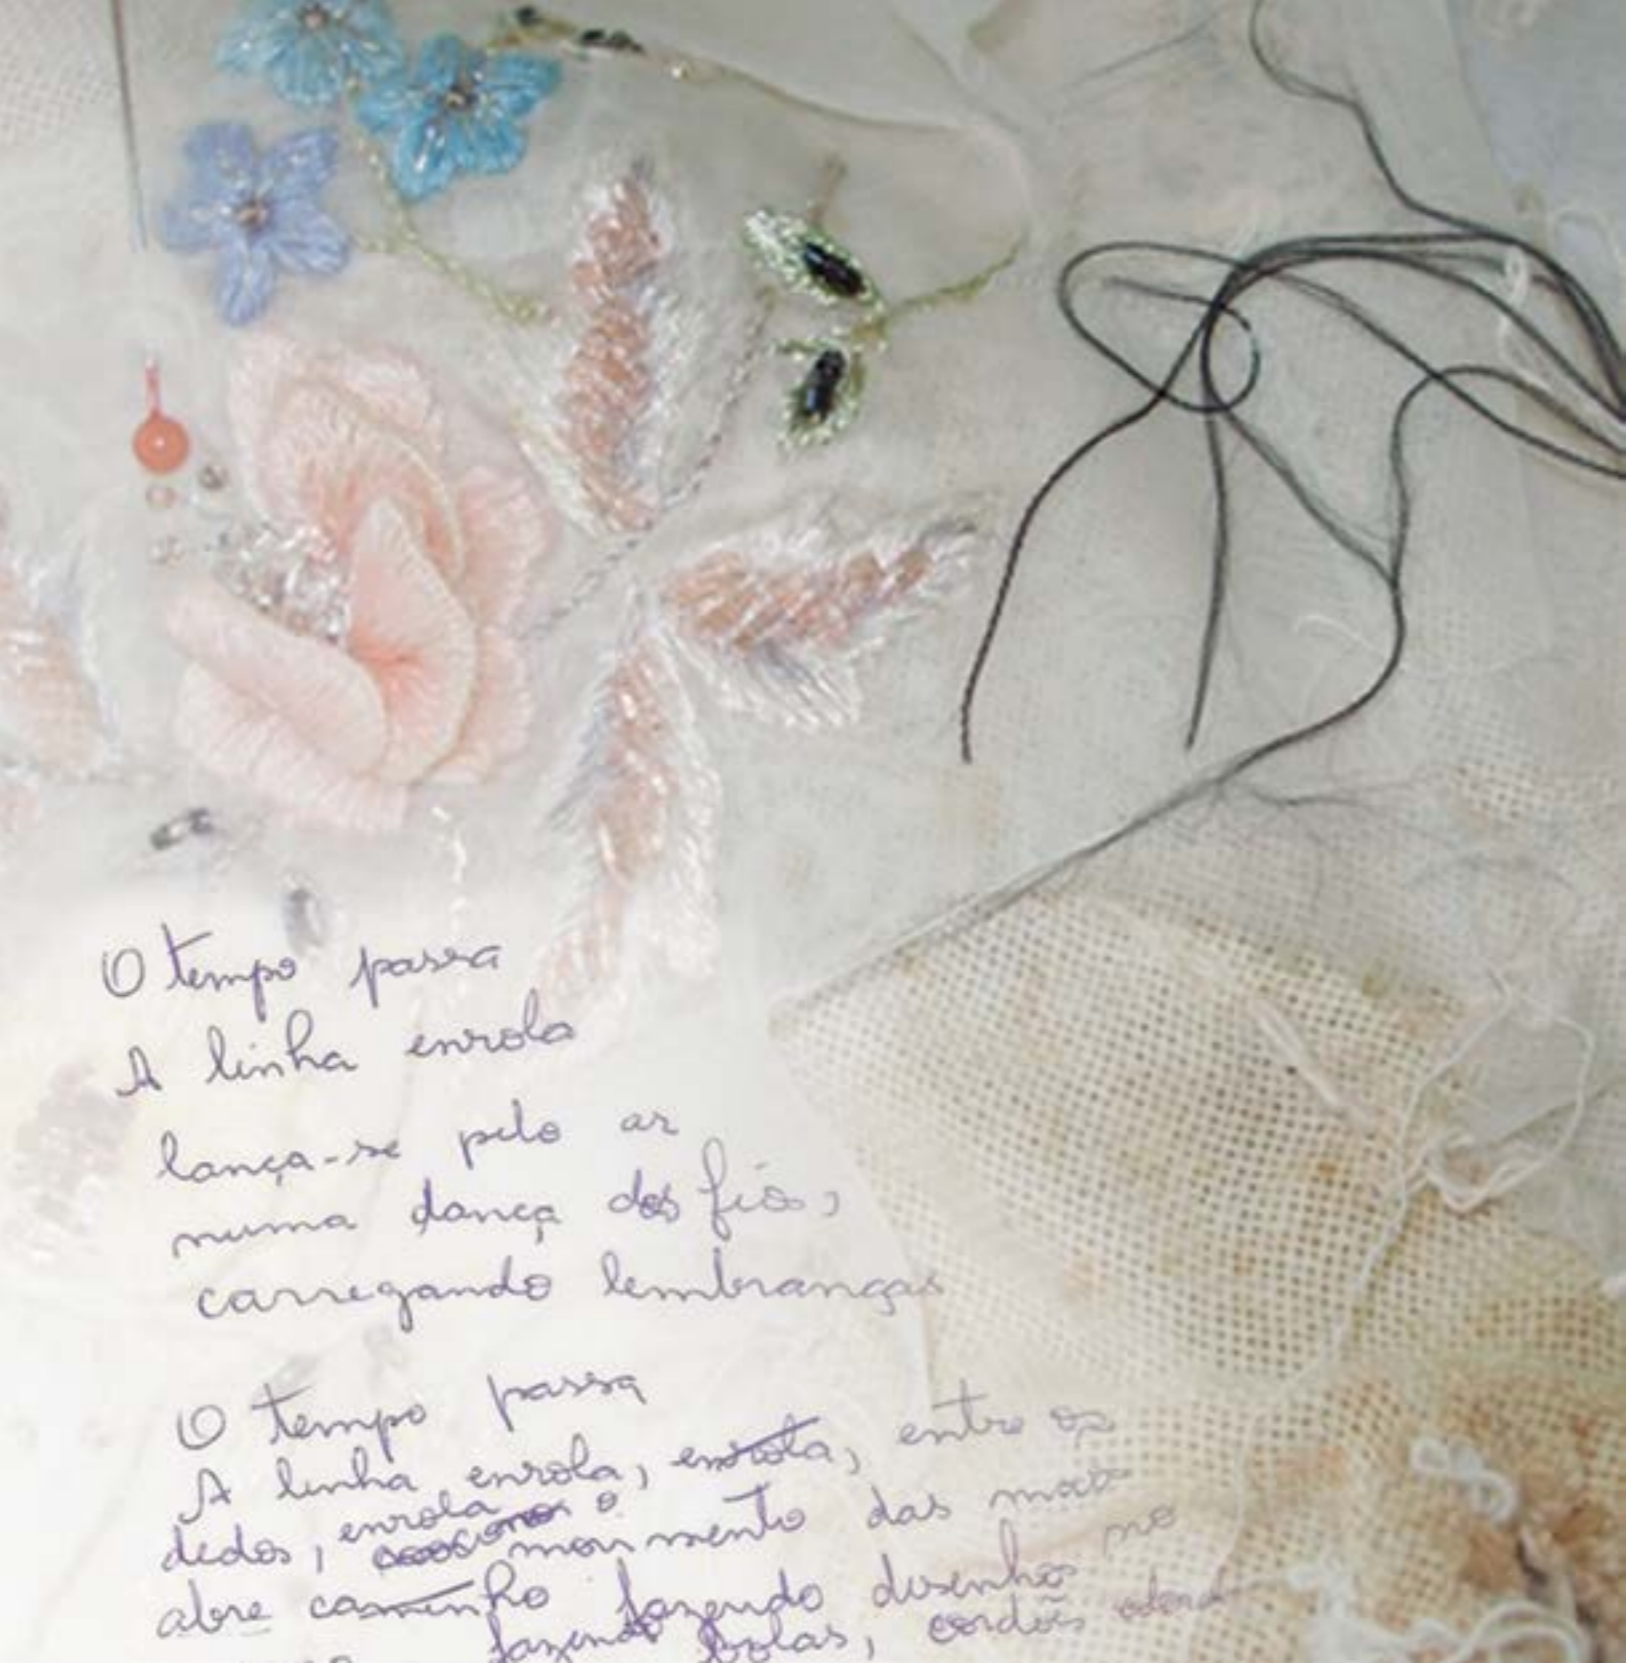 O tempo passa
A linha enrola
lança-se pelo ar
numa dança dos fios,
carregando lembranças
O tempo passa
A linha enrola, enrola, entre os
dedos, enrola o
movimento das mãos
abre caminho fazendo desenhos no
fazendo bolas, cordões